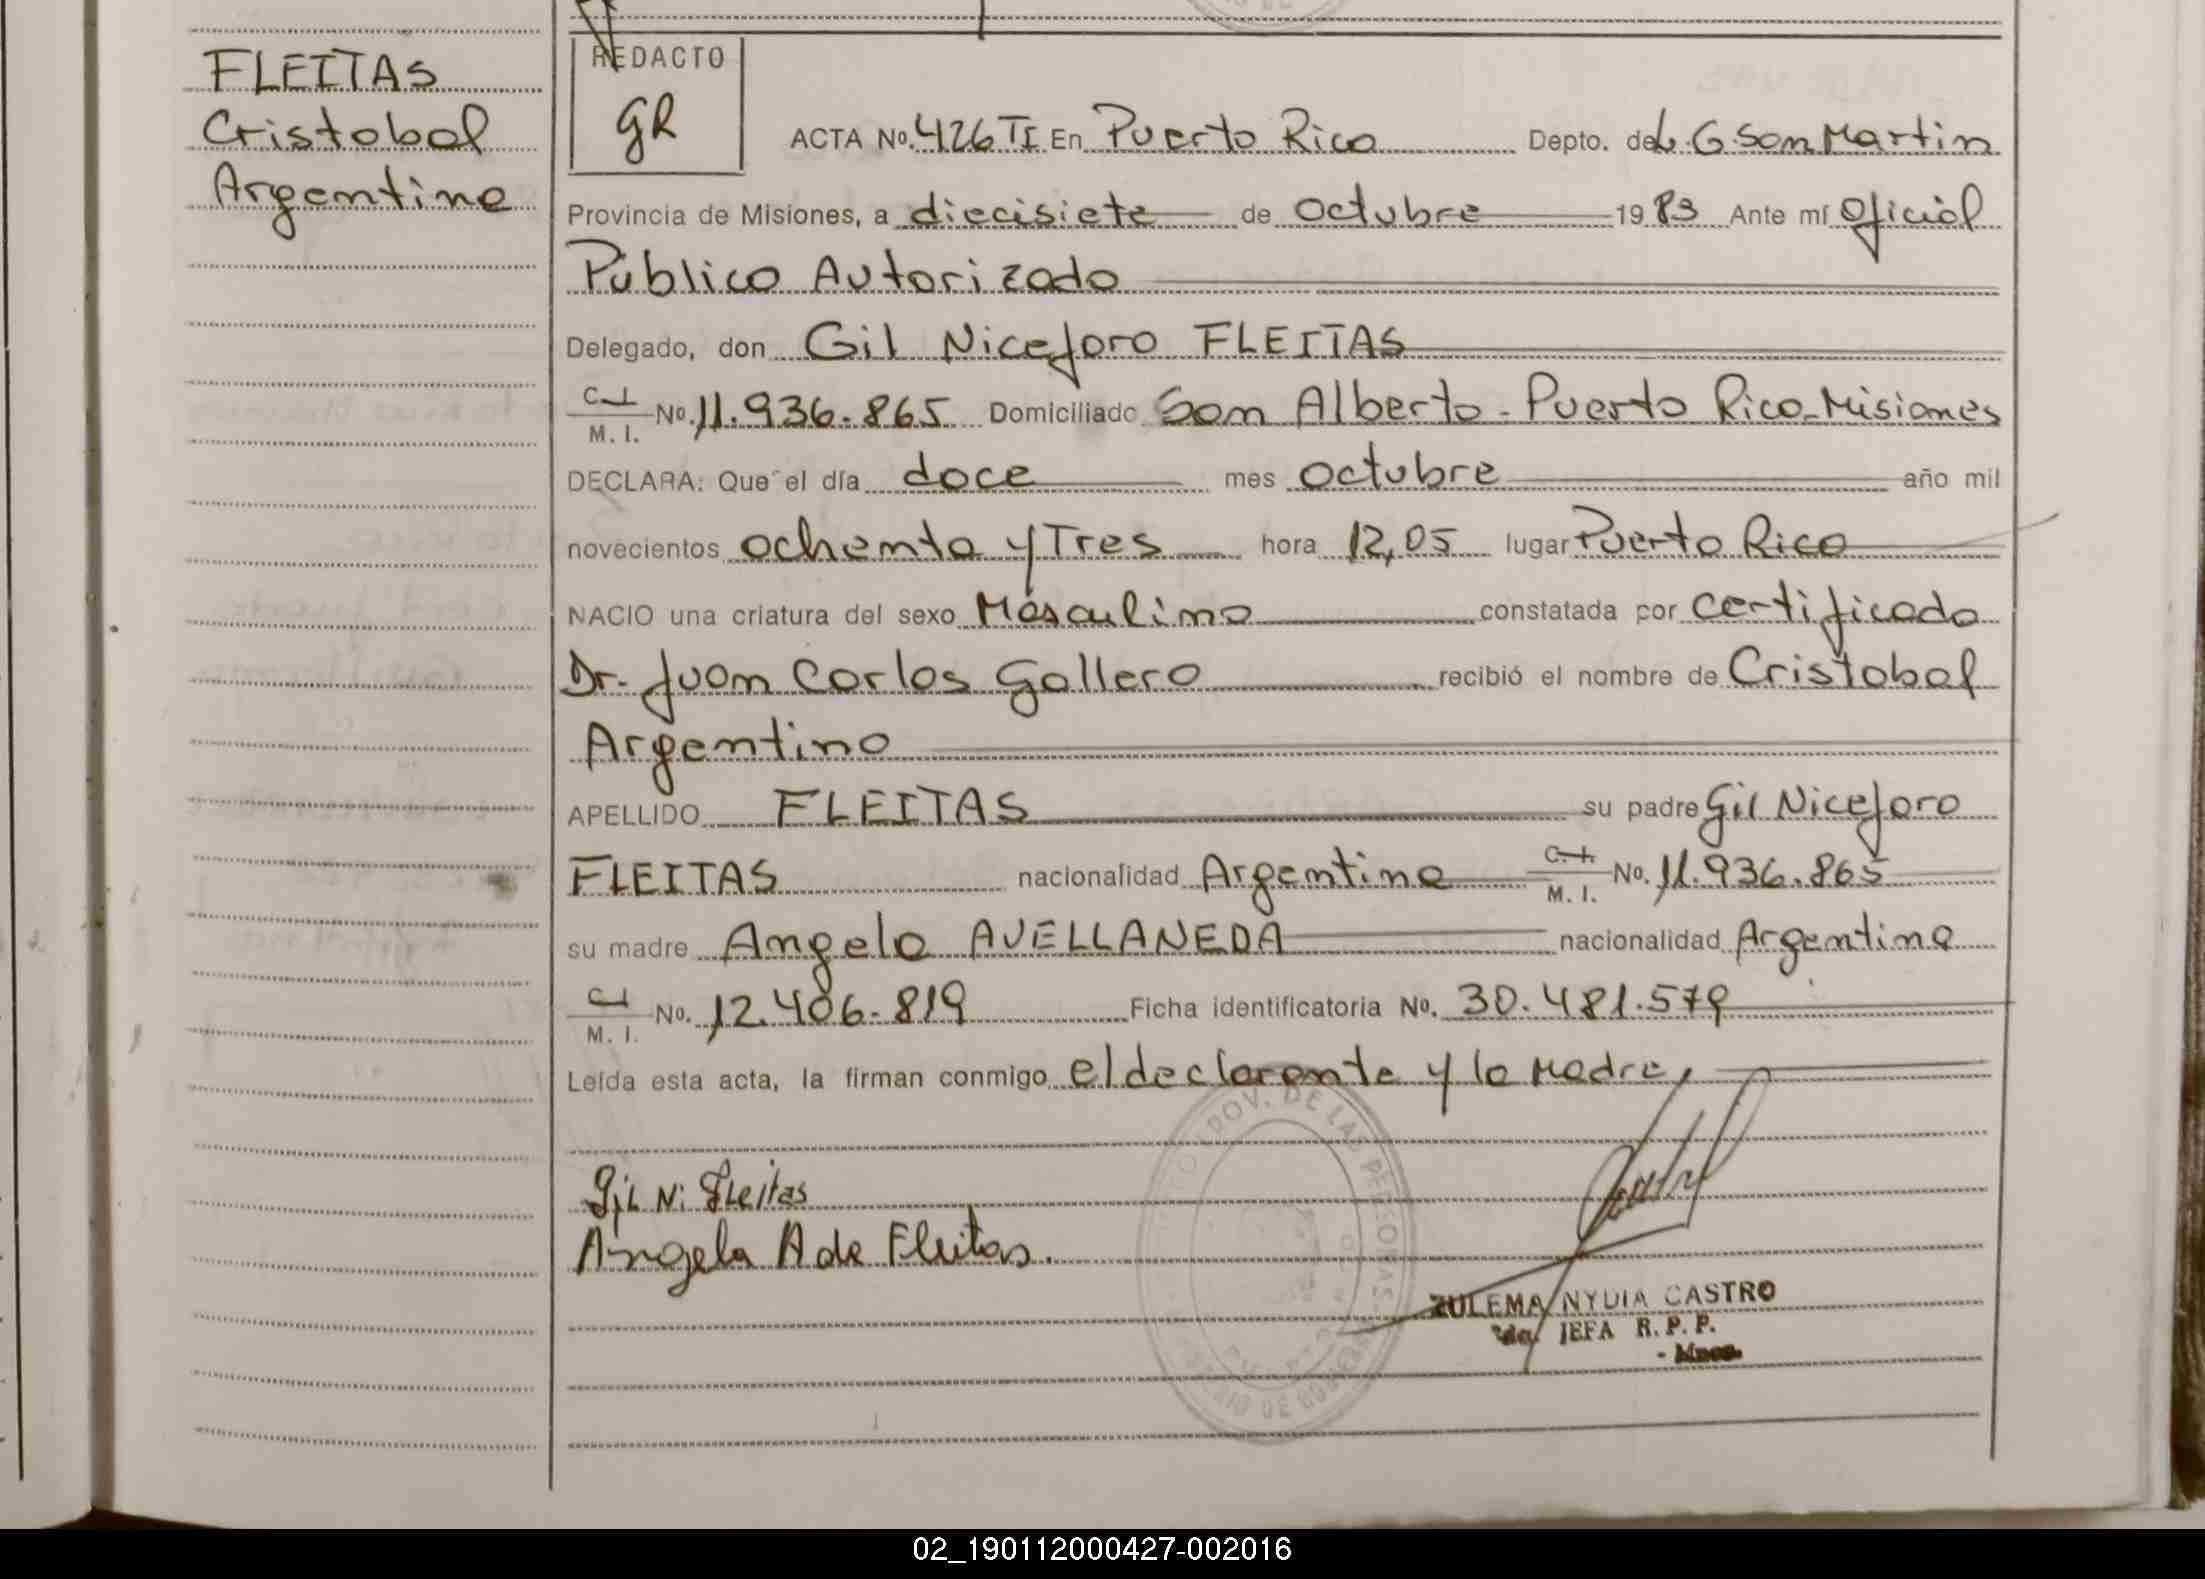 FLEITAS
Cristobal
Argentino
REDACTO
GR
ACTA No. 426 TI En Puerto Rico Depto. de L. G. San Martin
Provincia de Misiones, a diecisiete de Octubre 1983 Ante mí Oficial
Público Autorizado
Delegado, don Gil Niceforo FLEITAS
C.I. M. I. No. 11.936.865 Domiciliado San Alberto - Puerto Rico - Misiones
DECLARA: Que el día doce mes Octubre año mil
novecientos ochenta y Tres hora 12,05 lugar Puerto Rico
NACIO una criatura del sexo Masculino constatada por certificado
Dr. Juan Carlos Gallero recibió el nombre de Cristobal
Argentino
APELLIDO FLEITAS su padre Gil Niceforo
FLEITAS nacionalidad Argentina C.I. M. I. No. 11.936.865
su madre Angela AVELLANEDA nacionalidad Argentina
C.I. M. I. No. 12.406.819 Ficha identificatoria No. 30.481.579
Leída esta acta, la firman conmigo el declarante y la Madre,
Gil N. Fleitas
Angela A de Fleitas.
ZULEMA NYDIA CASTRO
2da. JEFA R. P. P.
- Mnes.
02_190112000427-002016